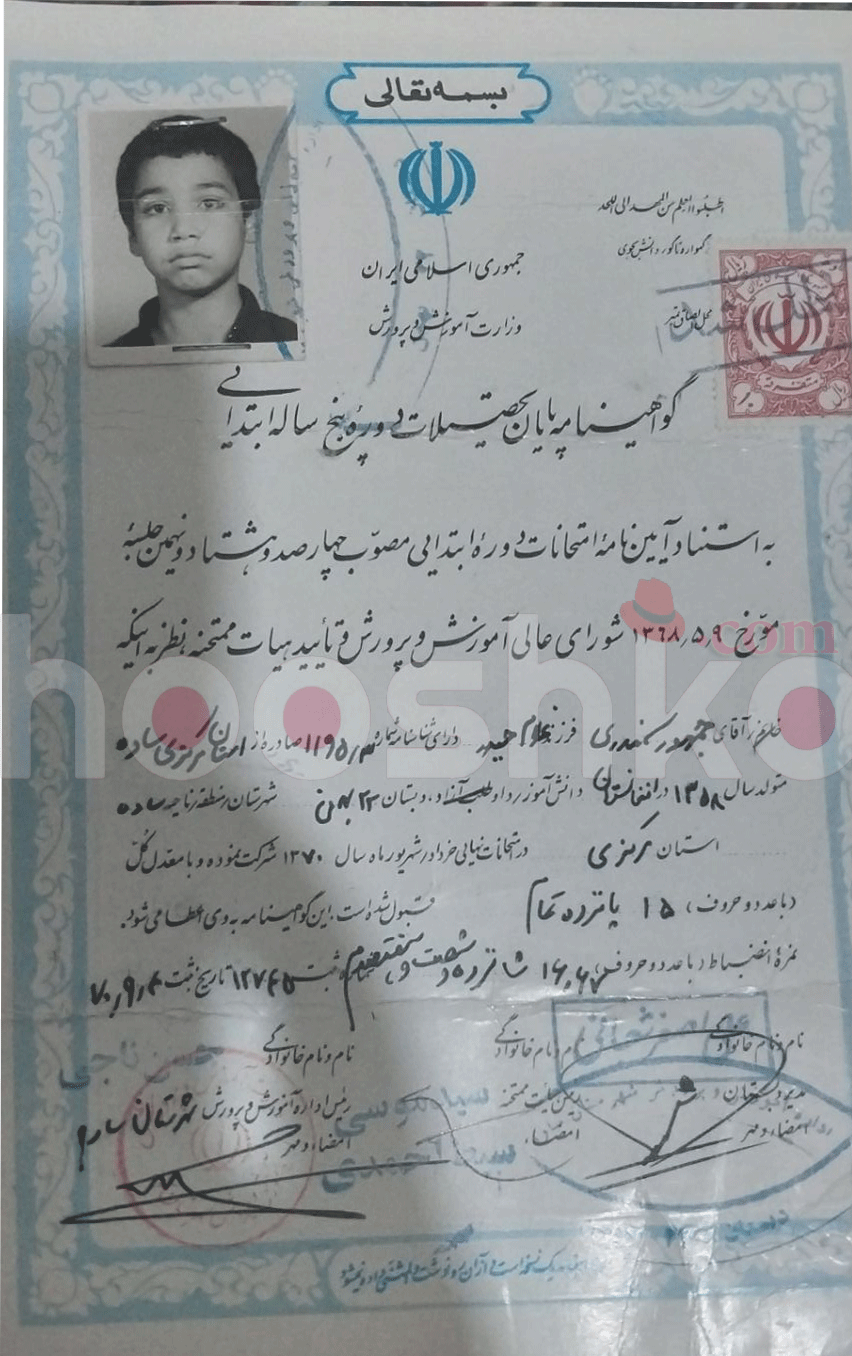 بسمه تعالی
اطلبوا العلم من المهد الی اللحد
ز گهواره تا گور دانش بجوی
جمهوری اسلامی ایران
محل الصاق تمبر
وزارت آموزش و پرورش
متفرقه
ریال
گواهینامه پایان تحصیلات دوره پنج ساله ابتدائی
به استناد آیین نامه امتحانات دوره ابتدایی مصوب چهارصد و هشتاد و نهمین جلسه
مورّخ ۱۳۶۸٫۵٫۹ شورای عالی آموزش و پرورش و تأیید هیات ممتحنه نظر به اینکه
hooshko.com
خانم/آقای فرزند غلام حیدر دارای شناسنامه شماره صادره از استان مرکزی ساوه
متولد سال ۱۳۵۸ در افغانستان دانش آموز داوطلب آزاد، دبستان ۲۲ بهمن شهرستان/منطقه/ناحیه ساوه
استان مرکزی در امتحانات نهایی خرداد/شهریور ماه سال ۱۳۷۰ شرکت نموده و با معدل کلّ
(با عدد و حروف) ۱۵ پانزده تمام قبول شده است. این گواهینامه به وی اعطا می شود.
نمره انضباط (با عدد و حروف) ۱۶٫۶۷ شانزده و شصت و هفت صدم شماره ثبت ۱۲۷۴۵ تاریخ ثبت ۷۰٫۹٫۴
نام و نام خانوادگی نام و نام خانوادگی نام و نام خانوادگی
حسن ناجی
مدیر دبستان رئیس هیات ممتحنه رئیس اداره آموزش و پرورش شهرستان ساوه
امضاء و مهر امضاء امضاء و مهر